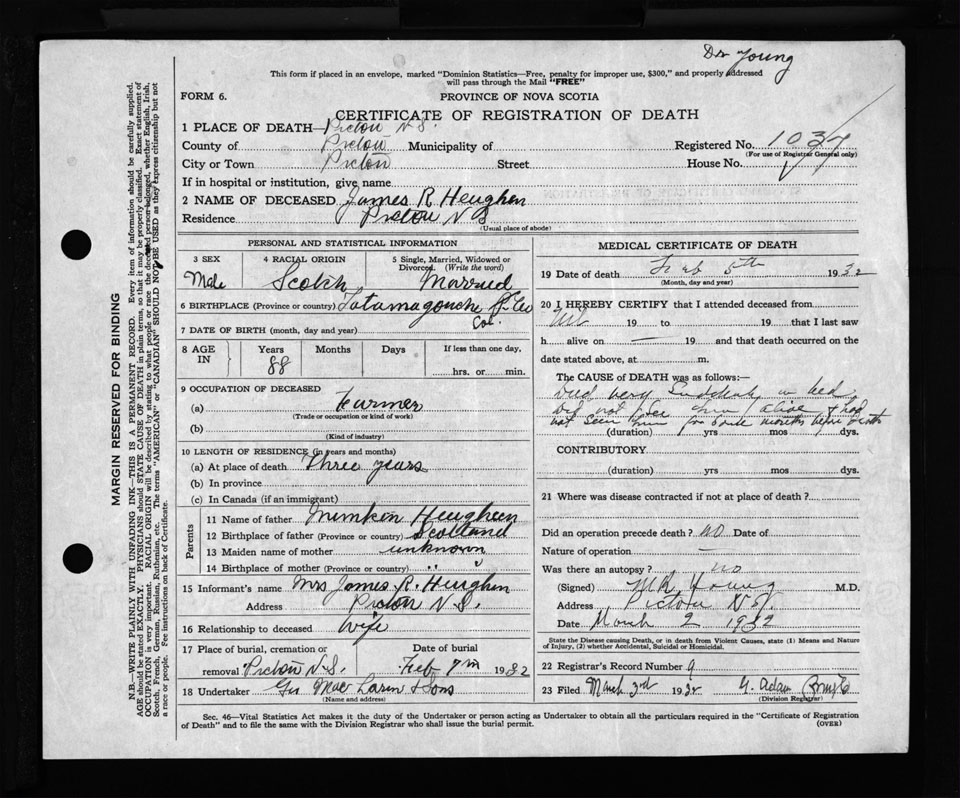 Dr Young
This form if placed in an envelope, marked "Dominion Statistics—Free, penalty for improper use, $300," and properly addressed
will pass through the Mail "FREE"
FORM 6.
PROVINCE OF NOVA SCOTIA
CERTIFICATE OF REGISTRATION OF DEATH
1 PLACE OF DEATH— Pictou N.S.
County of Pictou Municipality of Registered No. 1037
(For use of Registrar General only)
City or Town Pictou Street House No.
If in hospital or institution, give name
2 NAME OF DECEASED James R Heughen
Residence Pictou N S
(Usual place of abode)
PERSONAL AND STATISTICAL INFORMATION
3 SEX Male
4 RACIAL ORIGIN Scotch
5 Single, Married, Widowed or Divorced (Write the word) Married
6 BIRTHPLACE (Province or country) Tatamagouche
Col.
7 DATE OF BIRTH (month, day and year)
8 AGE IN Years 88 Months Days If less than one day, hrs. or min.
9 OCCUPATION OF DECEASED
(a) Farmer
(Trade or occupation or kind of work)
(b)
(Kind of industry)
10 LENGTH OF RESIDENCE (in years and months)
(a) At place of death Three years
(b) In province
(c) In Canada (if an immigrant)
Parents
11 Name of father Heugheen
12 Birthplace of father (Province or country) Scotland
13 Maiden name of mother unknown
14 Birthplace of mother (Province or country) " "
15 Informant's name Mrs James R. Heughen
Address Pictou N.S.
16 Relationship to deceased Wife
17 Place of burial, cremation or removal Pictou N.S. Date of burial Feb 7th 1932
18 Undertaker Mac Laren & Sons
(Name and address)
MEDICAL CERTIFICATE OF DEATH
19 Date of death Feb 5th 1932
(Month, day and year)
20 I HEREBY CERTIFY that I attended deceased from
19 to 19 that I last saw
h alive on — 19 and that death occurred on the
date stated above, at m.
The CAUSE OF DEATH was as follows:—
Died very suddenly in bed,
Did not see him alive & had
not seen him for some months before death
(duration) yrs mos dys.
CONTRIBUTORY
(duration) yrs mos dys.
21 Where was disease contracted if not at place of death?
Did an operation precede death? NO Date of
Nature of operation —
Was there an autopsy? no
(Signed) Young M.D.
Address Pictou N.S.
Date March 2 1932
State the Disease causing Death, or in death from Violent Causes, state (1) Means and Nature
of Injury, (2) whether Accidental, Suicidal or Homicidal.
22 Registrar's Record Number 9
23 Filed March 3rd 1932 G. Adam
(Division Registrar)
Sec. 46—Vital Statistics Act makes it the duty of the Undertaker or person acting as Undertaker to obtain all the particulars required in the "Certificate of Registration
of Death" and to file the same with the Division Registrar who shall issue the burial permit. (OVER)
MARGIN RESERVED FOR BINDING
N.B.—WRITE PLAINLY WITH UNFADING INK—THIS IS A PERMANENT RECORD. Every item of information should be carefully supplied.
AGE should be stated EXACTLY. PHYSICIANS should STATE CAUSE OF DEATH in plain terms, so that it may be properly classified. Exact statement of
OCCUPATION is very important. RACIAL ORIGIN will be described by stating to what people or race the deceased person belonged, whether English, Irish,
Scotch, French, German, Russian, Ruthenian, etc. The terms "AMERICAN" or "CANADIAN" SHOULD NOT BE USED as they express citizenship but not
a race or people. Fee instructions on back of Certificate.